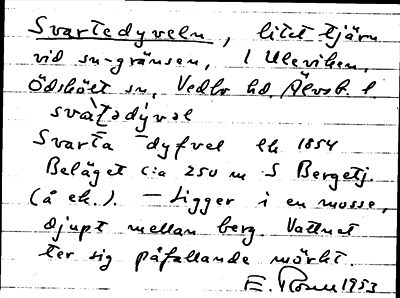 Svartedyveln, litet tjärn
vid sn-gränsen, i Uleviken,
Ödskölt sn, Vedbo hd, Älvsb. l.
svàtədývəl
Svarta Dyfvel ek 1854
Beläget c:a 250 m S Bergetj.
(å ek.). — Ligger i en mosse,
djupt mellan berg. Vattnet
ter sig påfallande mörkt.
1953